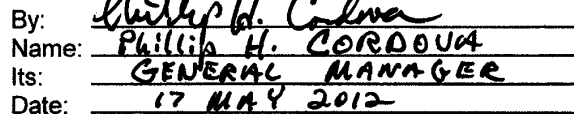 By: Phillip H. Cordova
Name: Phillip H. CORDOVA
Its: GENERAL MANAGER
Date: 17 MAY 2012